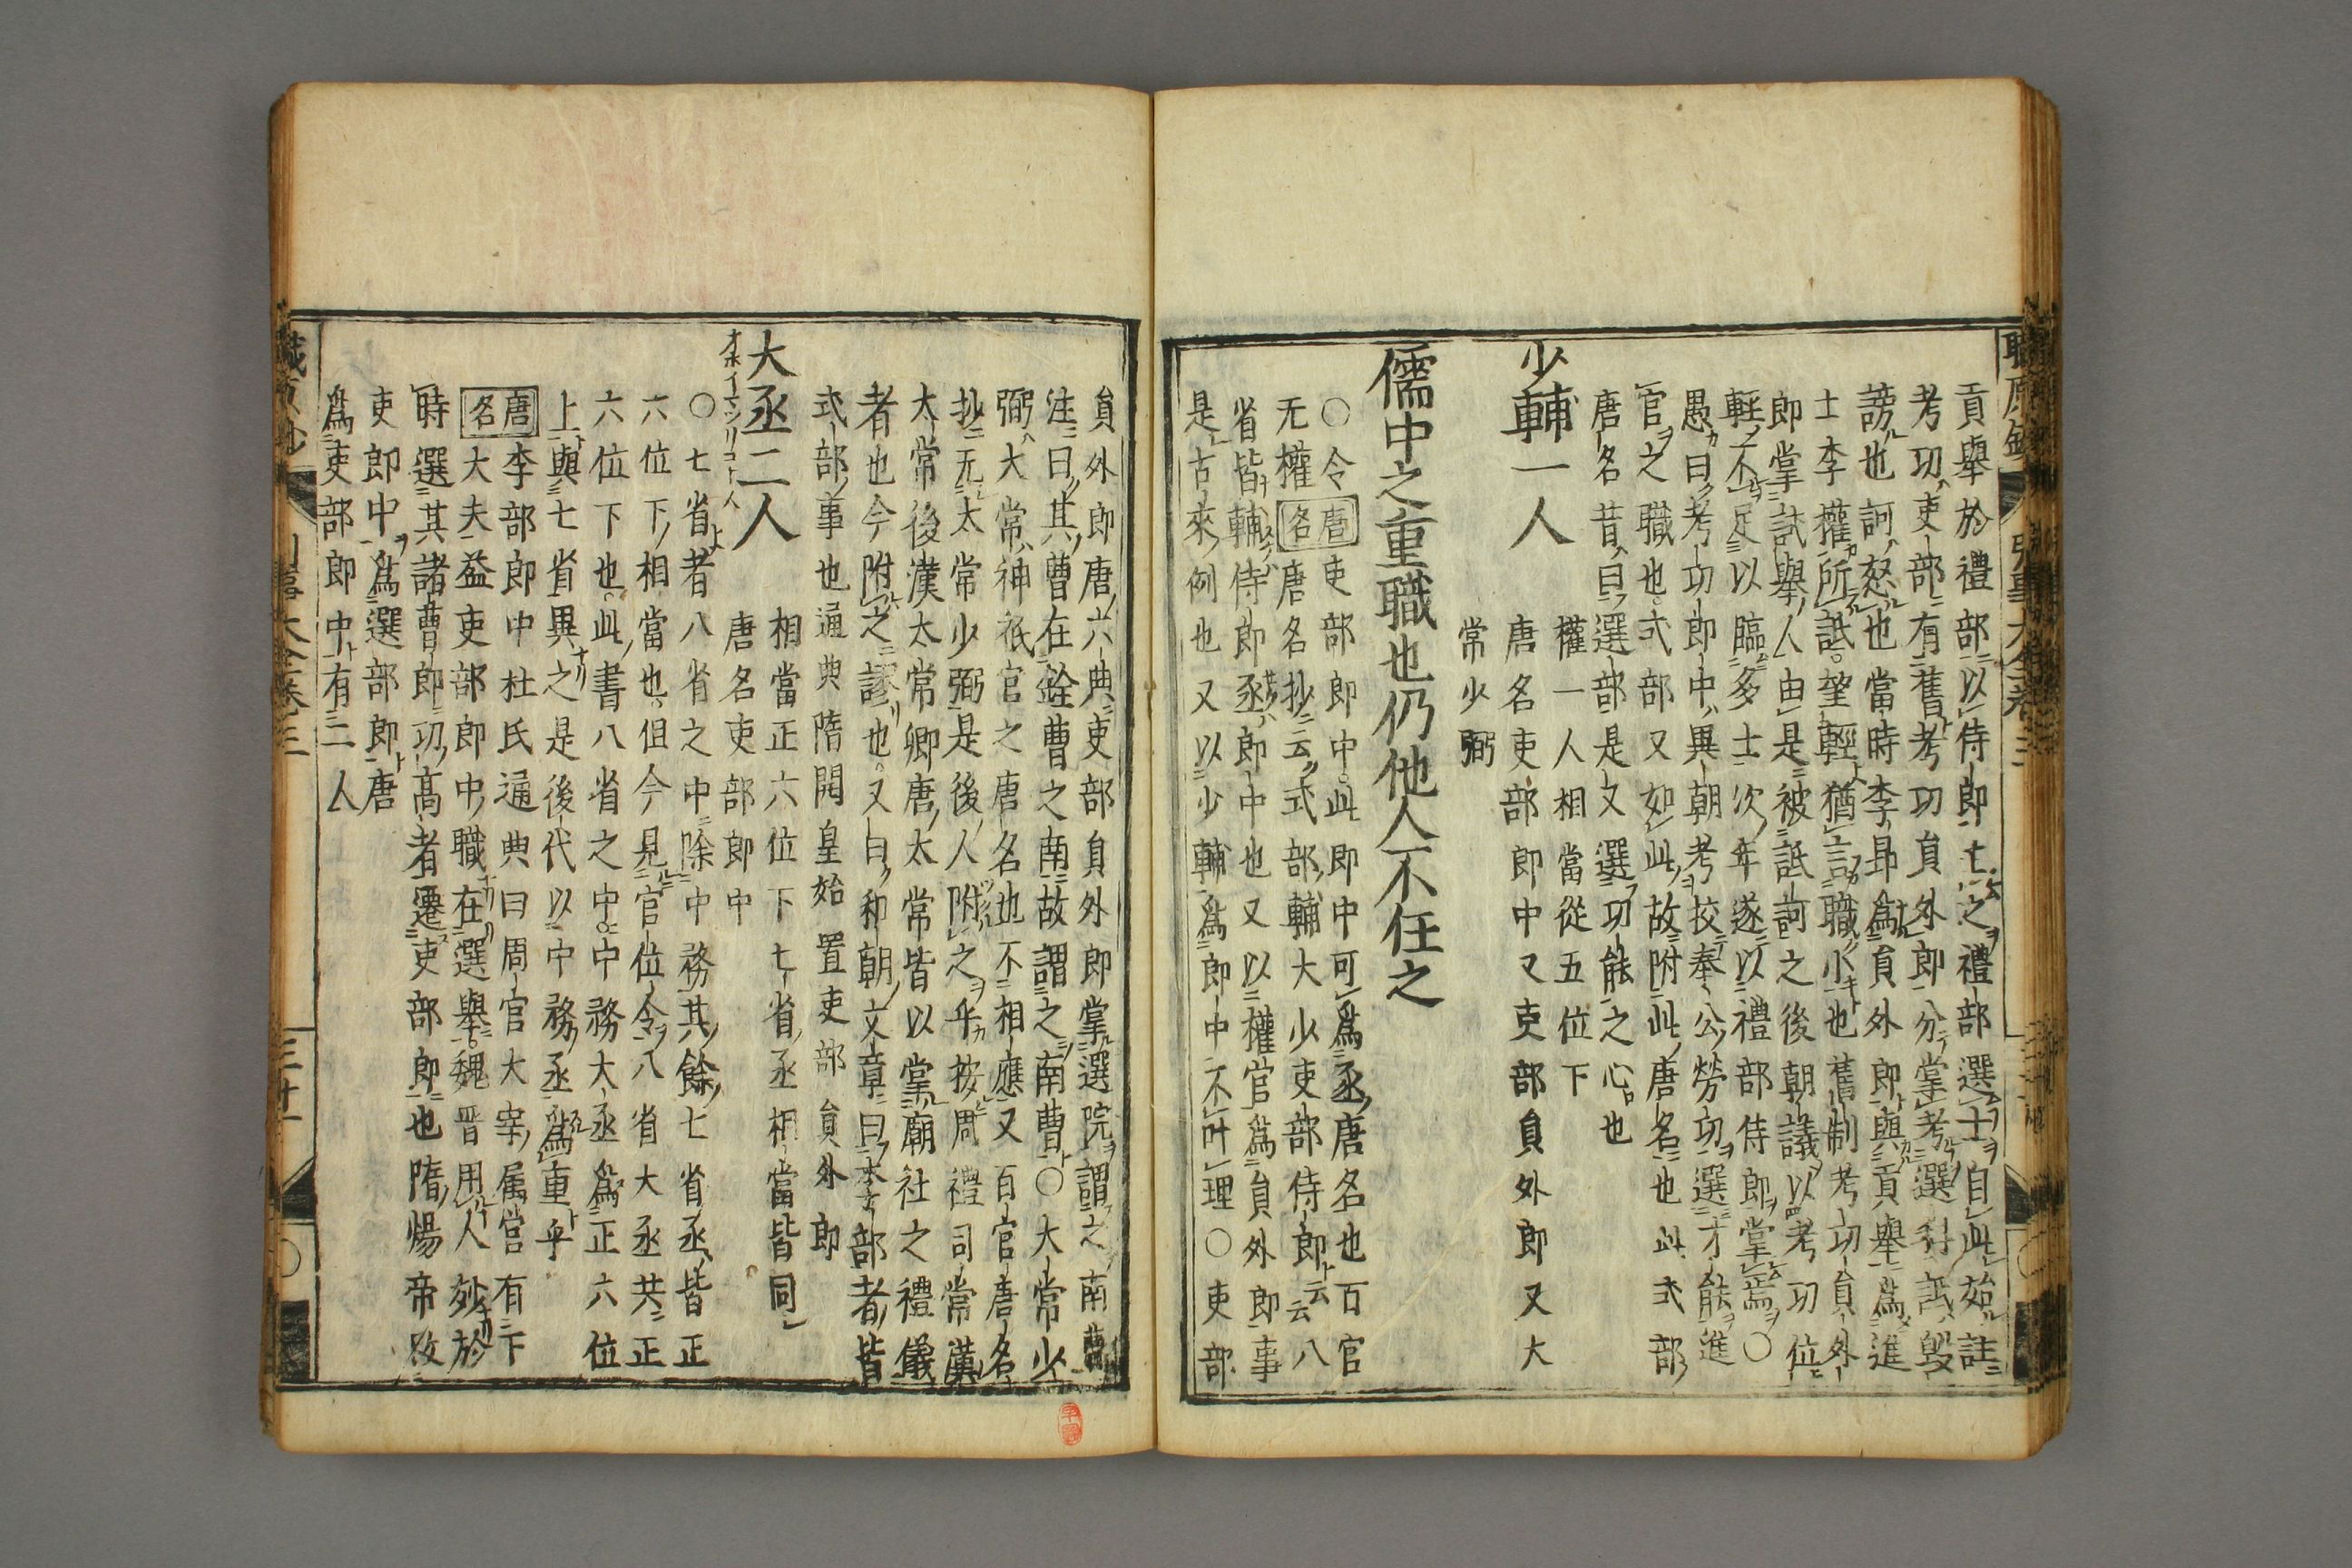 貢舉於禮部以侍郎主之禮部選士自此始註
考功吏部有舊考功貟外郎分掌考選科詆毀
謗也訶怒也當時李昴爲貟外郎與貢舉爲進
士李權所詆望輕猶言職小也舊制考功貟外
郎掌試舉人由是被詆訶之後朝議以考功位
輕不足以臨多士次年遂以禮部侍郎掌焉〇
愚曰考功郎中異朝考挍奉公勞功選才能進
官之職也式部又如此故附此唐名也此式部
唐名昔曰選部是又選功能之心也
少輔一人
權一人相當從五位下
唐名吏部郎中又吏部貟外郎又大
常少弼
儒中之重職也仍他人不任之
〇令唐名吏部郎中此即中可爲丞唐名也百官
无權唐名抄云式部輔大少吏部侍郎云云八
省皆輔侍郎丞郎中也又以權官爲貟外郎事
是古來例也又以少輔爲郎中不叶理〇吏部
貟外郎唐六典吏部貟外郎掌選院謂之南曹
注曰其曹在銓曹之南故謂之南曹〇大常少
弼大常神祇官之唐名也不相應又百官唐名
抄无太常少弼是後人附之乎按周禮司常漢
太常後漢太常卿唐太常皆以掌廟社之禮儀
者也今附之謬也又曰和朝文章曰本字部者皆
式部事也通典隋開皇始置吏部貟外郎
大丞二人
オホイマツリコト人
相當正六位下七省丞相當皆同
唐名吏部郎中
〇七省者八省之中除中務其餘七省丞皆正
六位下相當也但今見官位令八省大丞共正
六位下也此書八省之中中務大丞爲正六位
上與七省異之是後代以中務丞爲重乎
唐名李部郎中杜氏通典曰周官大宰属官有下
大夫益吏部郎中職在選舉魏晋用人妙於
時選其諸曹郎功高者遷吏部郎也隋煬帝改
吏郎中爲選部郎唐
爲吏部郎中有二人